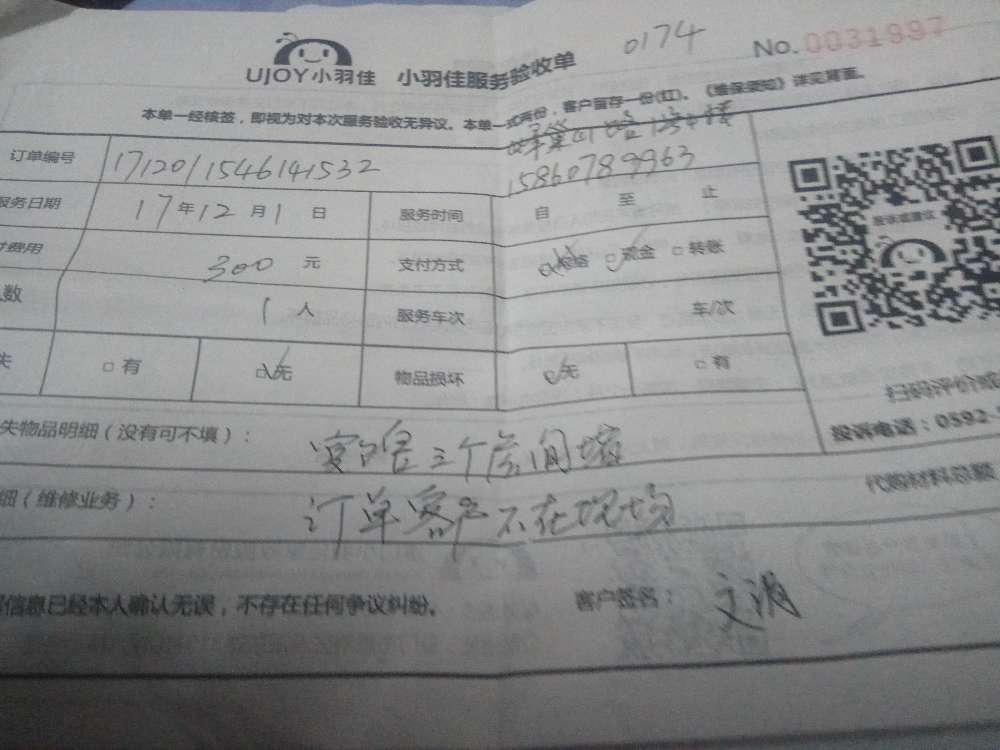 UJOY小羽佳 小羽佳服务验收单 0174 No.0031997
本单一经核签，即视为对本次服务验收无异议。本单一式两份，客户留存一份(红)。《维保须知》详见背面。
订单编号 1712011546141532 15860789963
服务日期 17年12月1日 服务时间 自 至 止
费用 300元 支付方式 现金 □转账
人数 1人 服务车次 车/次
失 □有 无 物品损坏 无 □有
扫码评价或
失物品明细（没有可不填）： 三个房间 投诉电话：0592-
细（维修业务）： 订单客户不在现场 代购材料总额
信息已经本人确认无误，不存在任何争议纠纷。 客户签名：